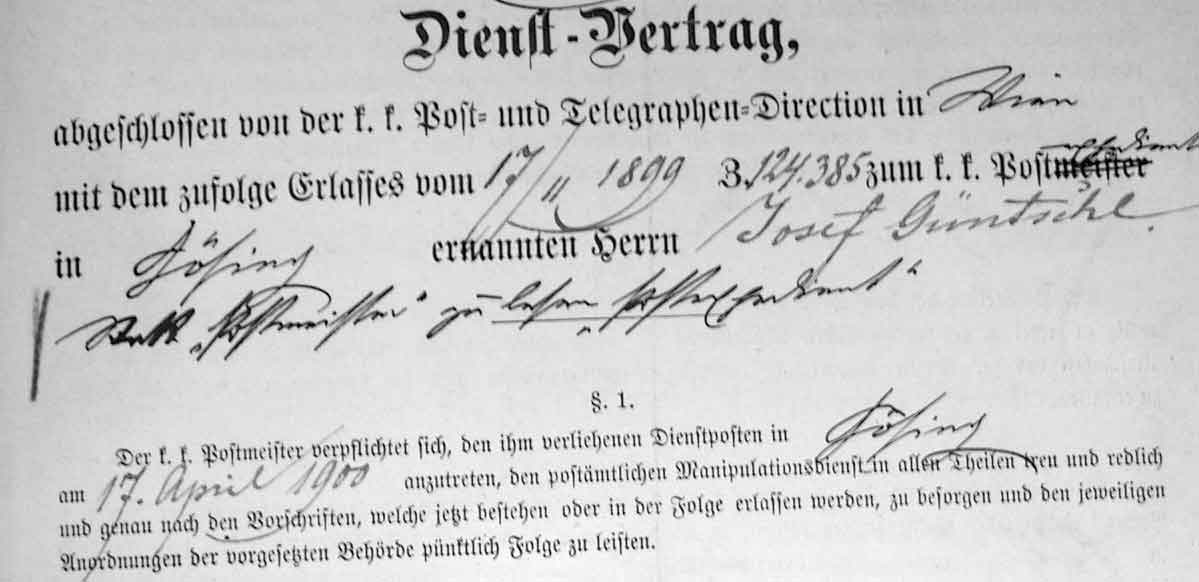 Dienst-Vertrag,
abgeschlossen von der k. k. Post- und Telegraphen-Direction in Wien
mit dem zufolge Erlasses vom 17/11 1899 Z. 124.385 zum k. k. Postmeister expedient
in Gösing ernannten Herrn Josef Güntschl.
statt „Postmeister“ zu lesen „Postexpedient“
§. 1.
Der k. k. Postmeister verpflichtet sich, den ihm verliehenen Dienstposten in Gösing
am 17. April 1900 anzutreten, den postämtlichen Manipulationsdienst in allen Theilen treu und redlich
und genau nach den Vorschriften, welche jetzt bestehen oder in der Folge erlassen werden, zu besorgen und den jeweiligen
Anordnungen der vorgesetzten Behörde pünktlich Folge zu leisten.